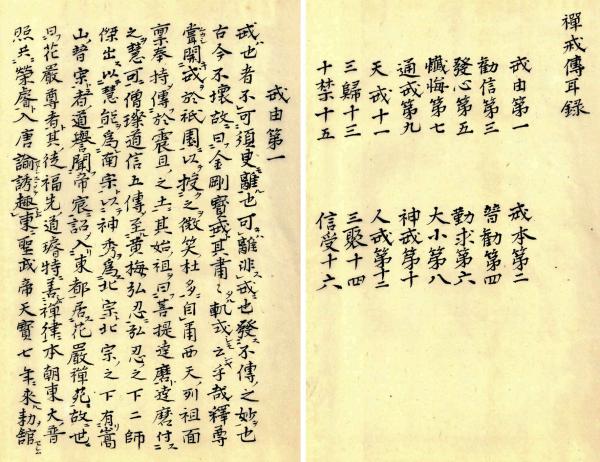 禪戒傳耳錄
戒由第一　戒本第二
勸信第三　普勸第四
發心第五　勤求第六
懺悔第七　大小第八
通戒第九　神戒第十
天戒十一　人戒第十二
三歸十三　三聚十四
十禁十五　信受十六
戒由第一
戒也者不可須臾離也可離非戒也發不傳之妙也
古今不壞故曰金剛寶戒其肅〻軌戒云乎哉釋尊
嘗開戒於祇園以授之微笑杜多自甬西天列祖面
稟奉持傳於震旦之土其始祖曰菩提達磨達磨付
之慧可僧璨道信五傳至黃梅弘忍弘忍之下二師
傑出以慧能爲南宗以神秀爲北宗北宗之下有嵩
山普寂者道譽聞帝宸詔入東都居花嚴禪苑故世
曰花嚴尊者其徒福先道璿特善禪律本朝東大普
照共榮睿入唐諭誘趣東聖武帝天寶七年來勅舘